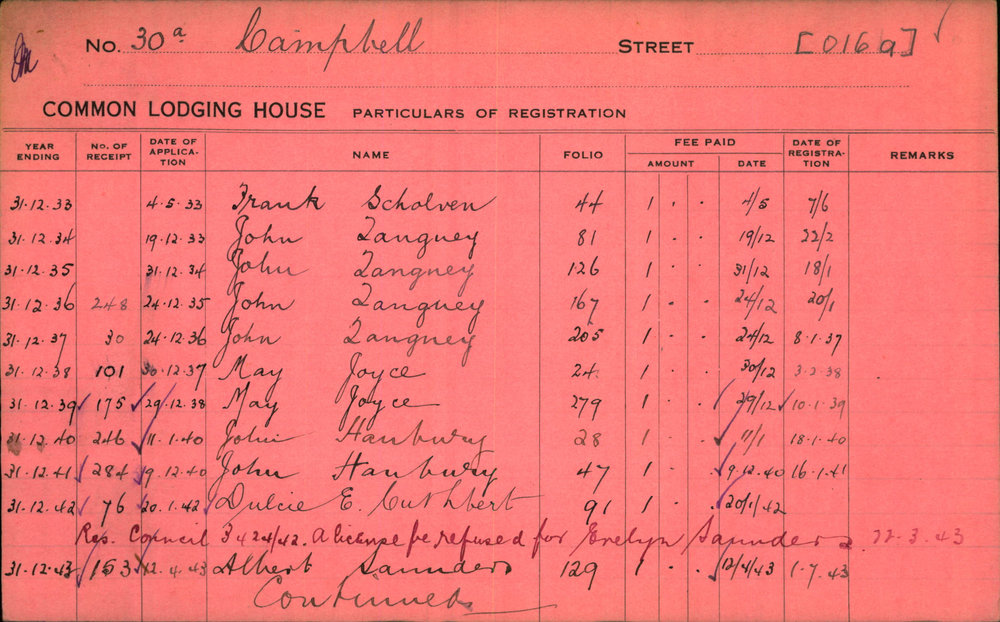 No. 30a Campbell STREET [016a]
COMMON LODGING HOUSE PARTICULARS OF REGISTRATION
YEAR ENDING No. OF RECEIPT DATE OF APPLICA-TION NAME FOLIO FEE PAID AMOUNT DATE DATE OF REGISTRA-TION REMARKS
31.12.33 4.5.33 Frank Scholven 44 1 . . 4/5 7/6
31.12.34 19.12.33 John Tangney 81 1 . . 19/12 22/2
31.12.35 31.12.34 John Tangney 126 1 . . 31/12 18/1
31.12.36 248 24.12.35 John Tangney 167 1 . . 24/12 20/1
31.12.37 30 24.12.36 John Tangney 205 1 . . 24/12 8.1.37
31.12.38 101 30.12.37 May Joyce 24 1 . . 30/12 3.2.38
31.12.39 175 29.12.38 May Joyce 279 1 . . 29/12 10.1.39
31.12.40 246 11.1.40 John Hanbury 28 1 . . 11/1 18.1.40
31.12.41 284 9.12.40 John Hanbury 47 1 . . 9.12.40 16.1.41
31.12.42 76 20.1.42 Dulcie E. Cuthbert 91 1 . . 20/1/42
Res. Council 3424/42. a license be refused for Evelyn Saunders 22.3.43
31.12.43 153 12.4.43 Albert Saunders 129 1 . . 12/4/43 1.7.43
Continued